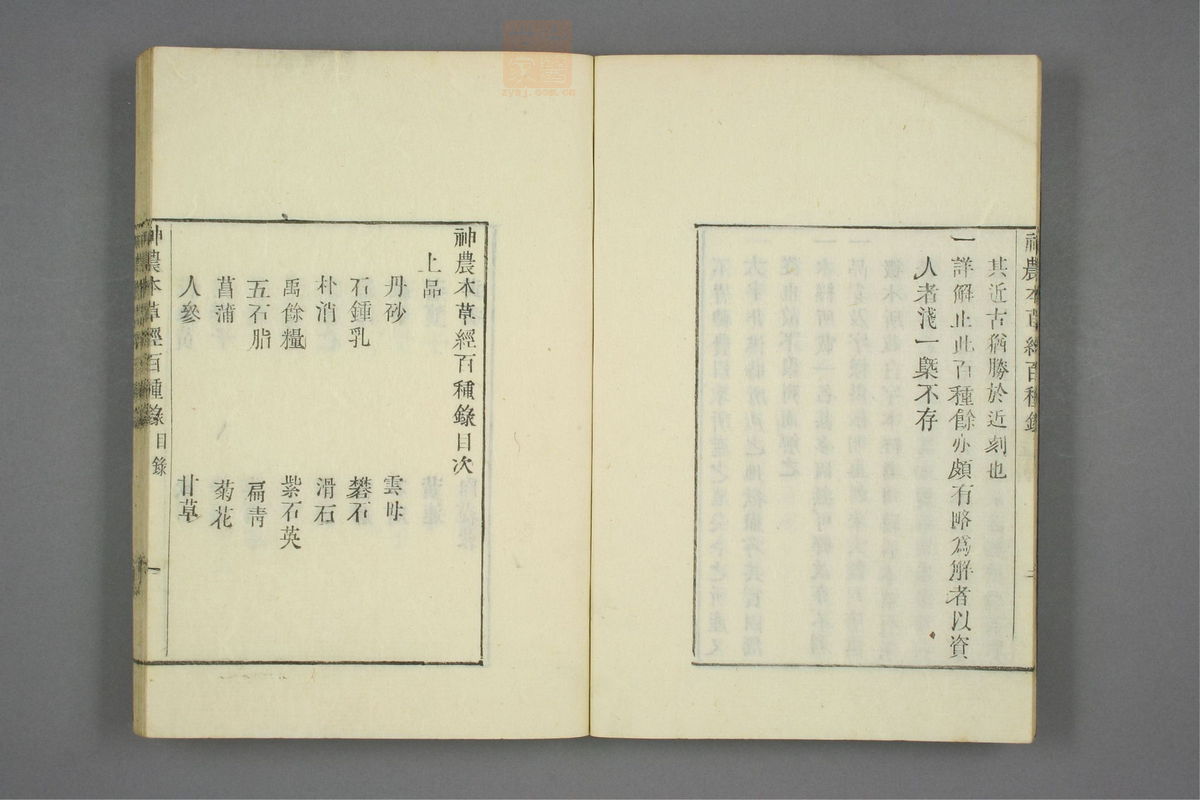 神農本草經百種錄
其近古猶勝於近刻也
一詳解止此百種餘亦頗有略為解者以資
人者淺一槩不存
二
神農本草經百種錄目次
上品
丹砂 雲母
石鍾乳 礬石
朴消 滑石
禹餘糧 紫石英
五石脂 扁青
菖蒲 菊花
人參 甘草
神農本草經百種錄 目錄 一
zysj.com.cn